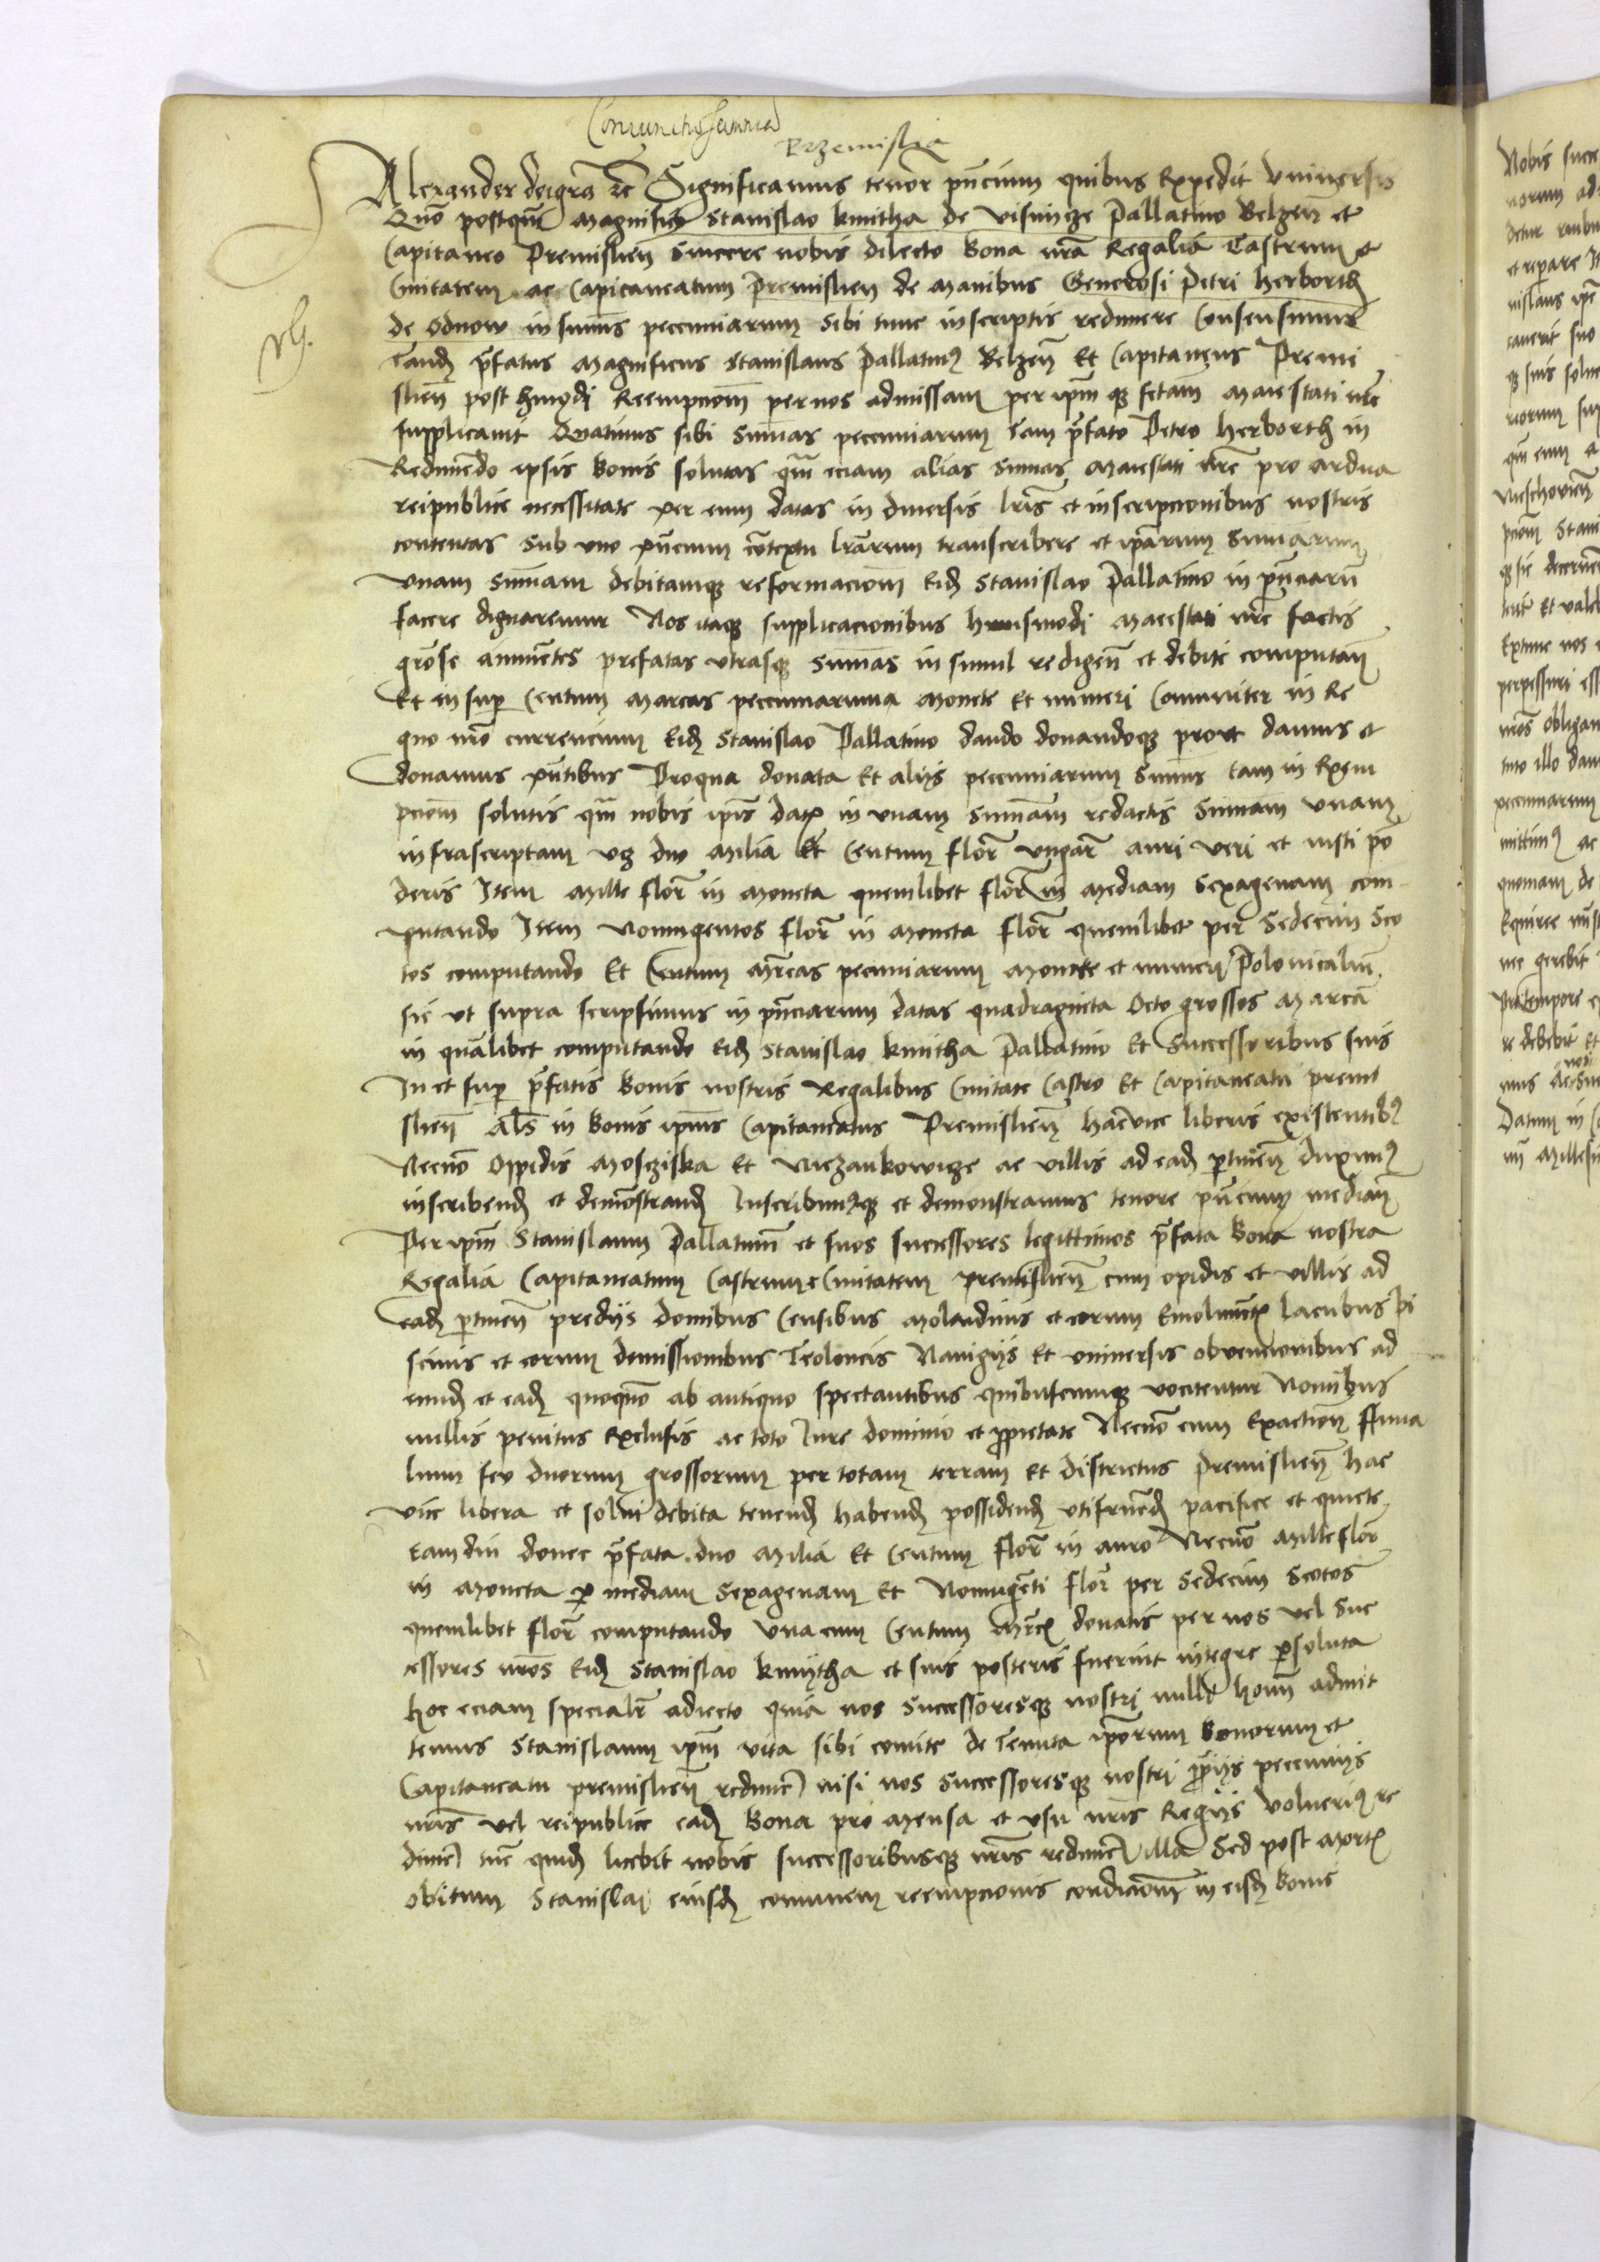 Przemislia
Alexander dei gra̅ zc̅ Significamus tenor̅ pn̅cium quibus Expedit Vniuersis
Quo̅ postqua̅ magnifico Stanislao kmitha de visnicze Pallatino Belzen̅ et
Capitaneo Premislien̅ sincere nobis dilecto Bona nr̅a Regalia Castrum et
Ciuitatem ac Capitaneatum Premislien̅ de manibus Generosi Petri herborth
de Odnow in summis pecuniarum sibi tunc inscriptis redimere Consensimus
Tandem pr̅fatus magnificus Stanislaus Pallatinus Belzen̅ Et Capitaneus Premi
slien̅ post hmo̅di Reempcionem per nos admissam per ipm̅ qz fctam maiestati nr̅e
supplicauit Quatinus sibi summas pecuniarum tam pr̅fato Petro herborth in
Redimendo ipsis bonis solutas qm̅ eciam alias summas maiestati nr̅e pro ardua
reipublice necessitate per eum datas in diuersis lr̅is et inscripcionibus nostris
contentas sub vno pn̅cium co̅textu lr̅arum transcribere et ipsarum summarum
vnam summam debitamqz reformacionem Eidem Stanislao Pallatino in pecuniarum
facere dignaremur Nos itaqz supplicacionibus huiusmodi maiestati nr̅e factis
gro̅se annuentes prefatas vtrasqz summas in simul redigen̅ et debite computan̅
Et insuper Centum marcas pecuniarum monete et numeri Comuniter in Re
gno nr̅o currencium Eidem Stanislao Pallatino dando donandoqz prout damus et
donamus pn̅tibus Pro qua donata Et alijs pecuniarum summis tam in Exem
pcionem solutis qm̅ nobis ipsis datis in vnam summam redactis summam vnam
infrascriptam vz duo milia Et Centum flor̅ vngar̅ auri veri et iusti po̅
deris Item mille flor̅ in moneta quemlibet flor̅ in mediam sexagenam com
putando Item Nonningentos flor̅ in moneta flor̅ quemlibet per sedecim sco
tos computando Et Centum mrcas pecuniarum monete et numeri Polonicalium
sic vt supra scripsimus in pecuniarum datas quadraginta Octo grossos marcam
in quamlibet computando Eidem Stanislao kmitha Pallatino Et Successoribus suis
In et super pr̅fatis bonis nostris Regalibus Ciuitate Castro Et Capitaneatu premi
slien̅ als in bonis ipsius Capitaneatus Premislien̅ hac vice liberis existentibus
Necno̅ Oppidis mosciska Et Niezankowicze ac villis ad eadem pertinen̅ duximus
inscribend et demonstrand Inscribimusqz et demonstramus tenore pn̅cium median̅
Per ipm̅ Stanislaum Pallatinum et suos successores legittimos pr̅fata bona nostra
Regalia Capitaneatum Castrum et Ciuitatem premislien̅ cum opidis et villis ad
eadem pertinen̅ predijs domibus Censibus molendinis et eorum Emolumentis lacubus pi
scinis et eorum demissionibus Teoloneis Nauigijs Et vniuersis obuencionibus ad
eundem et eadem quoquo̅ ab antiquo spectantibus quibuscumqz vocitentur Nominibus
nullis penitus Exclusis ac toto Iure dominio et proprietate Necno̅ cum Exaction̅ ffuma
lium seu duorum grossorum per totam terram Et districtus Premislien̅ hac
vice libera et solui debita tenend habend possidend vtifruend pacifice et quiete
tamdiu donec pr̅fata duo milia Et Centum flor̅ in auro Necno̅ mille flor̅
in moneta per mediam Sexagenam Et Nonningenti flor̅ per sedecim scotos
quemlibet flor̅ computando vna cum Centum mrcis donatis per nos vel suc
cessores nr̅os Eidem Stanislao kmytha et suis posteris fuerint integre persoluta
hoc eciam specialr̅ adiecto quia nos Successoresqz nostri nulli homini admit
temus Stanislaum ipm̅ vita sibi comite de Tenuta ipsorum bonorum et
Capitaneatu premislien̅ redimere nisi nos Successoresqz nostri proprijs pecunijs
nr̅is vel reipublice eadem bona pro mensa et vsu nr̅is Regijs voluerimus re
dimere tunc quidem licebit nobis successoribusqz nr̅is redimere illa Sed post mortis
obitum Stanislai eiusdem comunem reempcionis condicionem in eisdem bonis